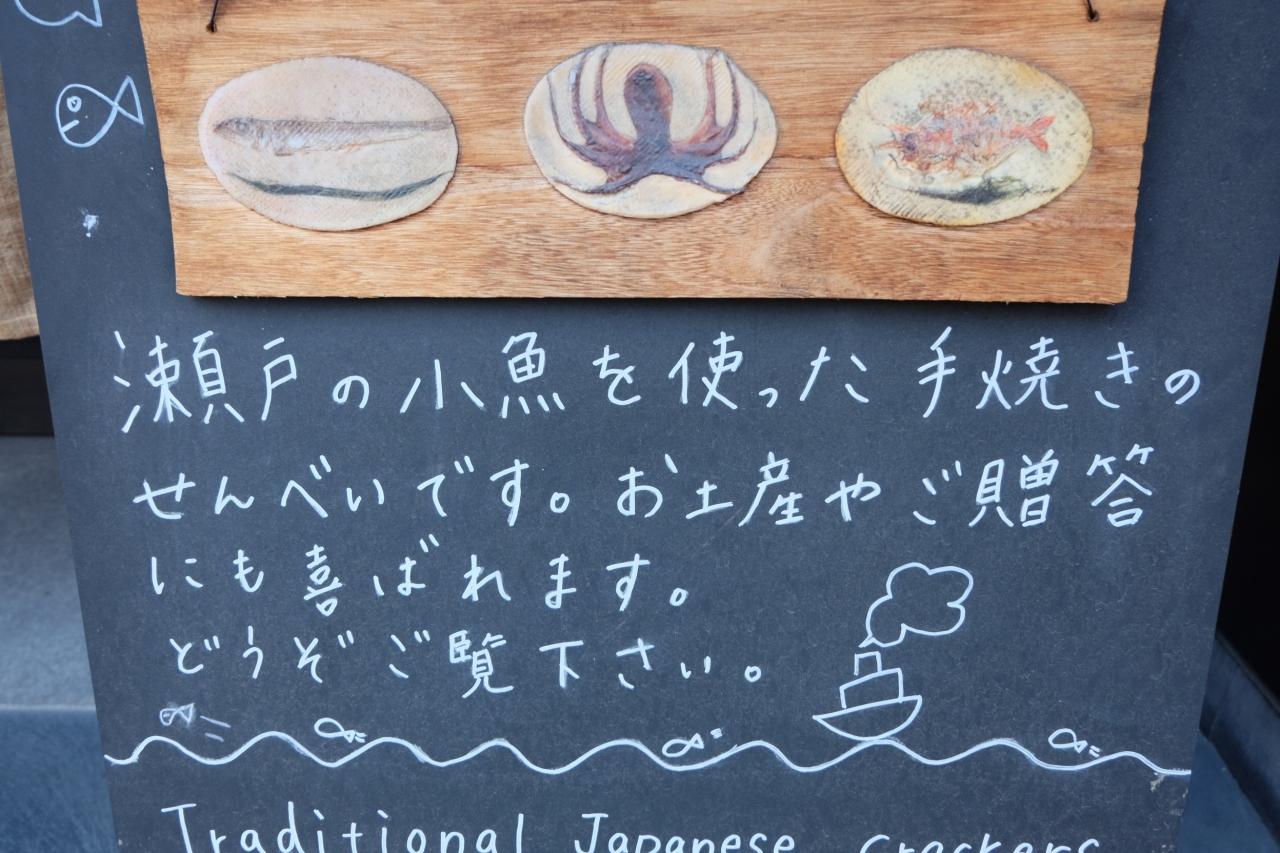 瀬戸の小魚を使った手焼きの
せんべいです。お土産やご贈答
にも喜ばれます。
どうぞご覧下さい。
Traditional Japanese crackers